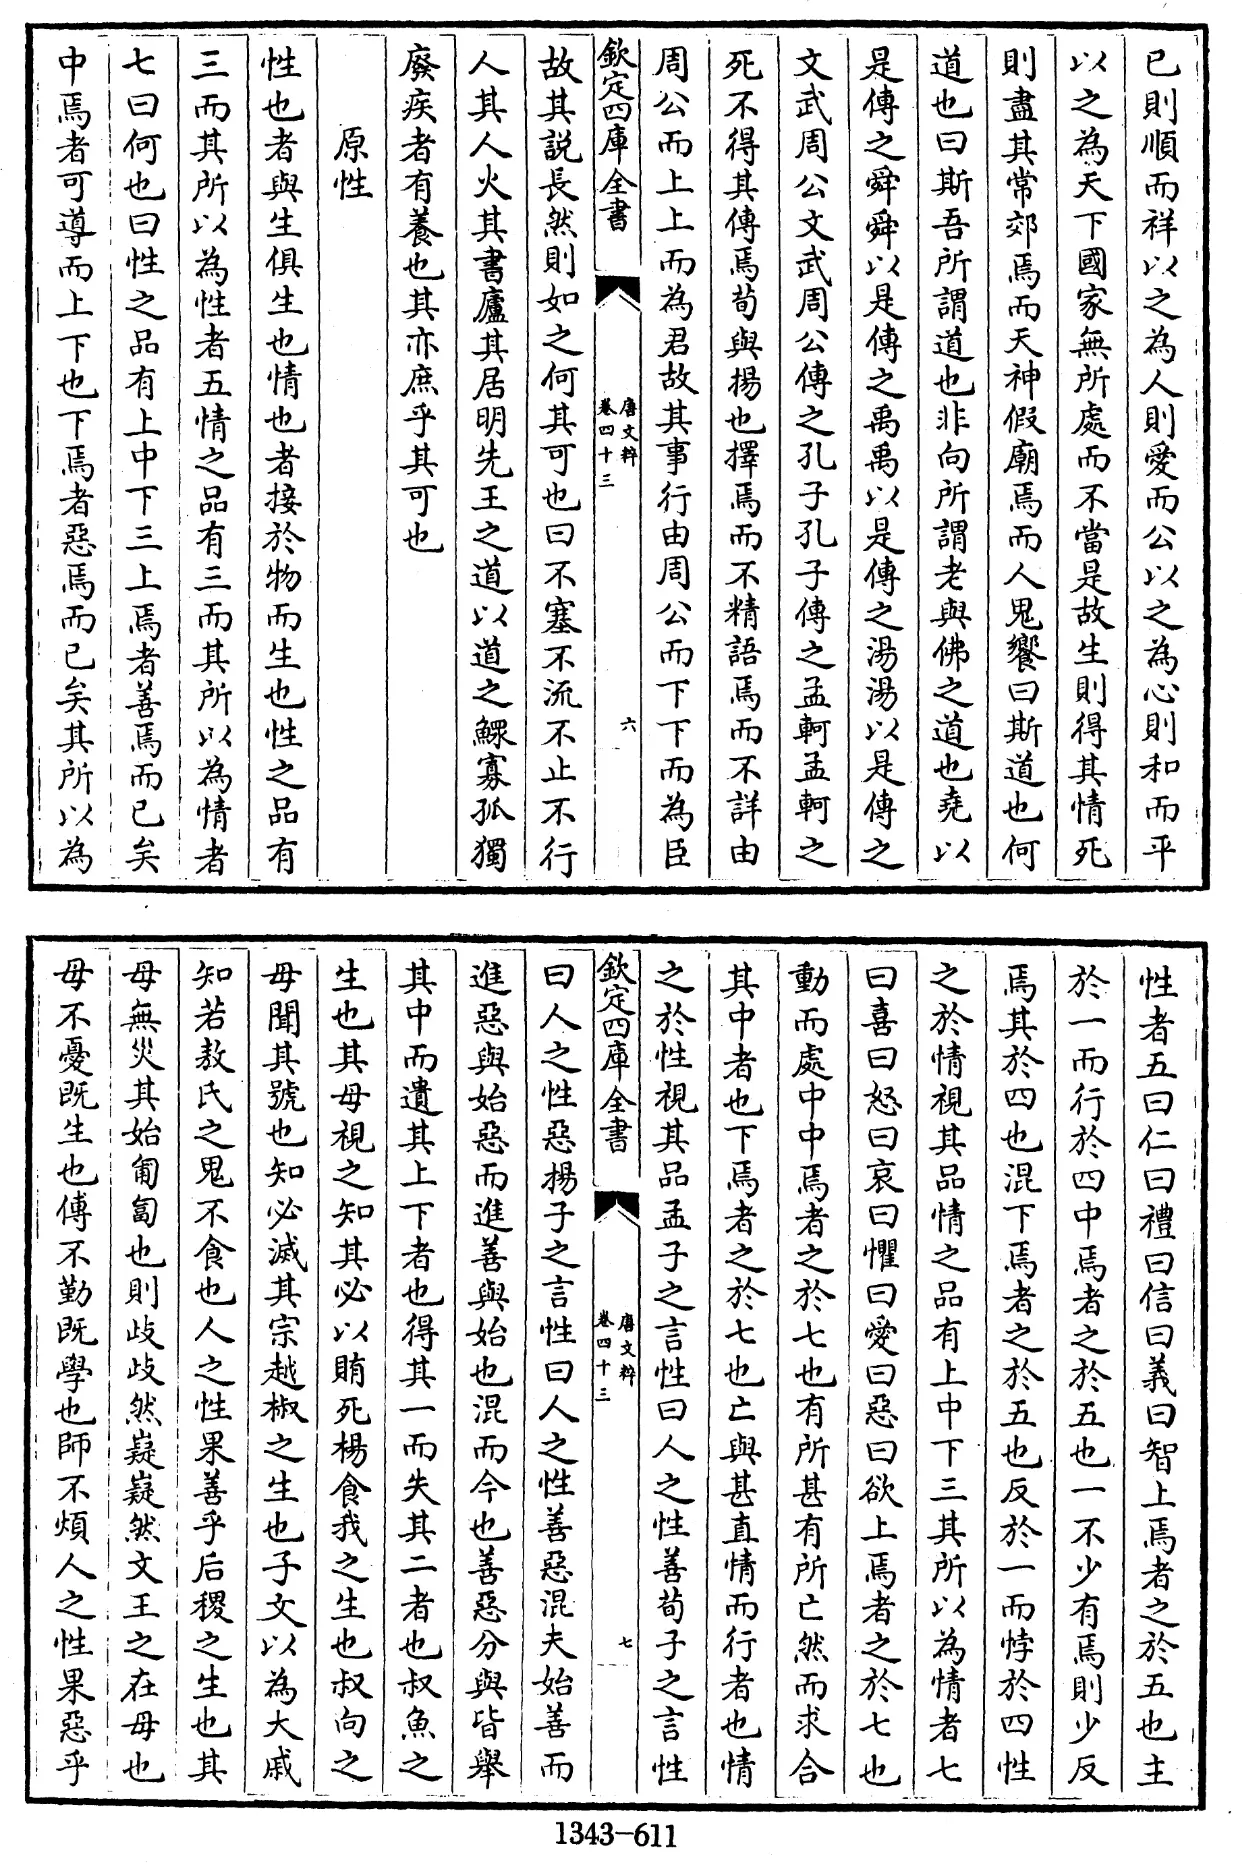 已則順而祥以之為人則愛而公以之為心則和而平
以之為天下國家無所處而不當是故生則得其情死
則盡其常郊焉而天神假廟焉而人鬼饗曰斯道也何
道也曰斯吾所謂道也非向所謂老與佛之道也堯以
是傳之舜舜以是傳之禹禹以是傳之湯湯以是傳之
文武周公文武周公傳之孔子孔子傳之孟軻孟軻之
死不得其傳焉荀與揚也擇焉而不精語焉而不詳由
周公而上上而為君故其事行由周公而下下而為臣
欽定四庫全書
唐文粹
卷四十三
六
故其説長然則如之何其可也曰不塞不流不止不行
人其人火其書廬其居明先王之道以道之鰥寡孤獨
廢疾者有養也其亦庶乎其可也
原性
性也者與生俱生也情也者接於物而生也性之品有
三而其所以為性者五情之品有三而其所以為情者
七曰何也曰性之品有上中下三上焉者善焉而已矣
中焉者可導而上下也下焉者惡焉而已矣其所以為
性者五曰仁曰禮曰信曰義曰智上焉者之於五也主
於一而行於四中焉者之於五也一不少有焉則少反
焉其於四也混下焉者之於五也反於一而悖於四性
之於情視其品情之品有上中下三其所以為情者七
曰喜曰怒曰哀曰懼曰愛曰惡曰欲上焉者之於七也
動而處中中焉者之於七也有所甚有所亡然而求合
其中者也下焉者之於七也亡與甚直情而行者也情
之於性視其品孟子之言性曰人之性善荀子之言性
欽定四庫全書
唐文粹
卷四十三
七
曰人之性惡揚子之言性曰人之性善惡混夫始善而
進惡與始惡而進善與始也混而今也善惡分與皆舉
其中而遺其上下者也得其一而失其二者也叔魚之
生也其母視之知其必以賄死楊食我之生也叔向之
母聞其號也知必滅其宗越椒之生也子文以為大戚
知若敖氏之鬼不食也人之性果善乎后稷之生也其
母無災其始匍匐也則歧歧然嶷嶷然文王之在母也
母不憂既生也傅不勤既學也師不煩人之性果惡乎
1343-611